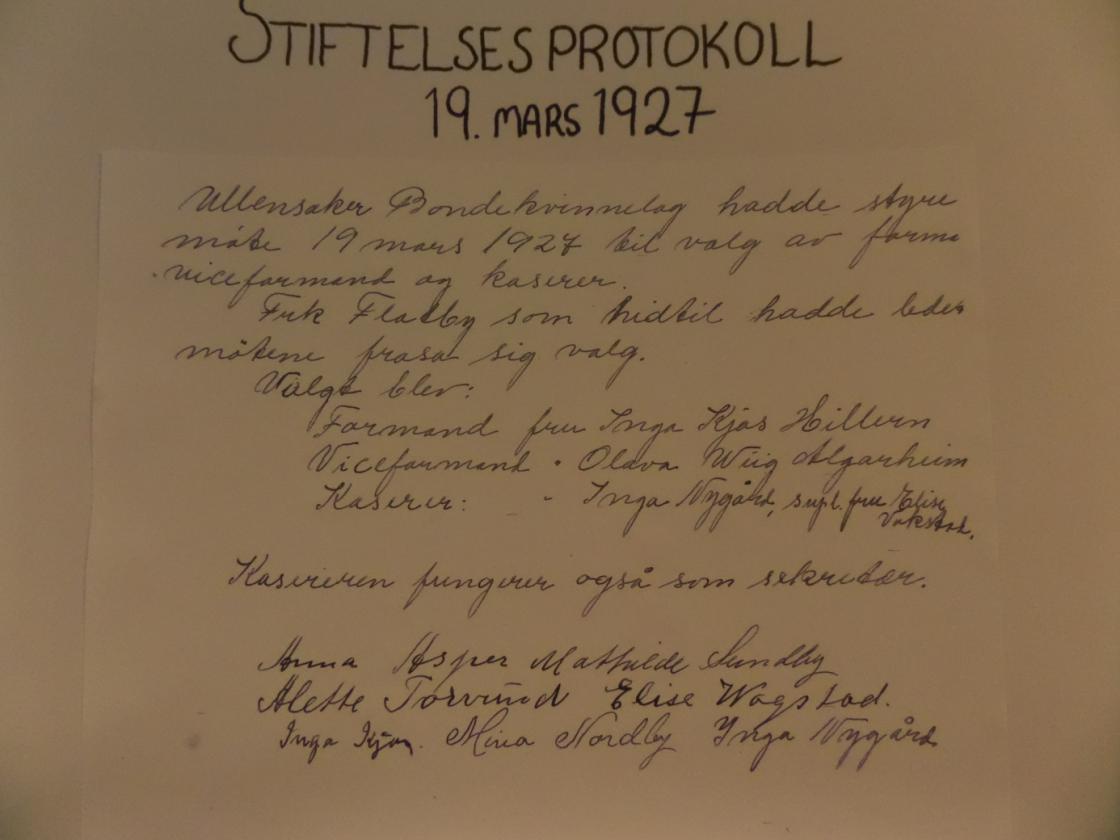 STIFTELSESPROTOKOLL
19. MARS 1927
Ullensaker Bondekvinnelag hadde styre
møte 19 mars 1927 til valg av forma
viceformand og kaserer.
Frk Flatby som hidtil hadde leder
møtene frasa sig valg.
Valgt blev:
Formand fru Inga Kjos Hillern
Viceformand " Olava Wiig Algarheim
Kaserer: " Inga Nygård, supl. fru Elise
Vakstad.
Kasereren fungerer også som sekretær.
Anna Asper Mathilde Sundby
Alette Torvund Elise Wagstad.
Inga Kjos. Mina Nordby Inga Nygård